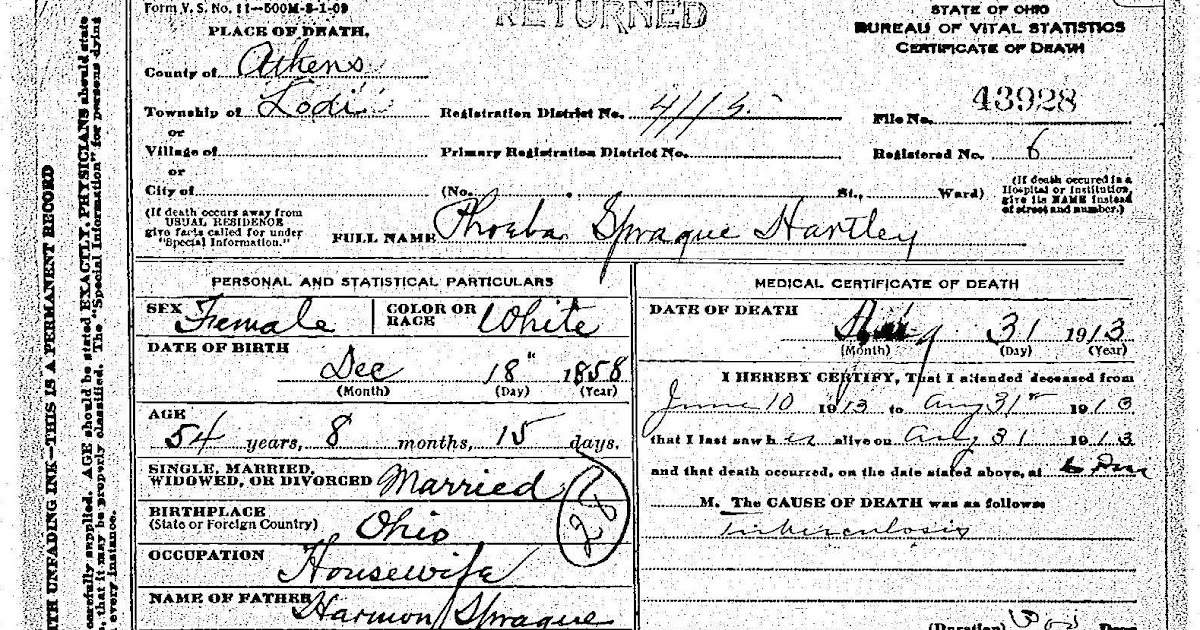 Form V. S. No. 11—500M-8-1-09
RETURNED
STATE OF OHIO
BUREAU OF VITAL STATISTICS
CERTIFICATE OF DEATH
PLACE OF DEATH.
County of Athens
Township of Lodi
Registration District No. 4115
43928
File No.
or
Village of
Primary Registration District No.
Registered No. 6
or
City of
(No. St., Ward)
(If death occured in a
Hospital or Institution,
give its NAME instead
of street and number.)
(If death occurs away from
USUAL RESIDENCE
give facts called for under
"Special Information.")
FULL NAME Phoeba Sprague Hartley
PERSONAL AND STATISTICAL PARTICULARS
SEX Female
COLOR OR
RACE White
DATE OF BIRTH
Dec 18" 1858
(Month) (Day) (Year)
AGE
54 years, 8 months, 15 days.
SINGLE, MARRIED,
WIDOWED, OR DIVORCED Married
28
BIRTHPLACE
(State or Foreign Country) Ohio
OCCUPATION
Housewife
NAME OF FATHER Harmon Sprague
MEDICAL CERTIFICATE OF DEATH
DATE OF DEATH
Aug 31 1913
(Month) (Day) (Year)
I HEREBY CERTIFY, That I attended deceased from
June 10 1913 to Aug 31st 1913
that I last saw her alive on Aug 31 1913
and that death occurred, on the date stated above, at 6 Pm
M. The CAUSE OF DEATH was as follows:
Tuberculosis
(Duration) Days
ITH UNFADING INK—THIS IS A PERMANENT RECORD
carefully supplied. AGE should be stated EXACTLY. PHYSICIANS should state
, that it may be properly classified. The "Special Information" for persons dying
every instance.